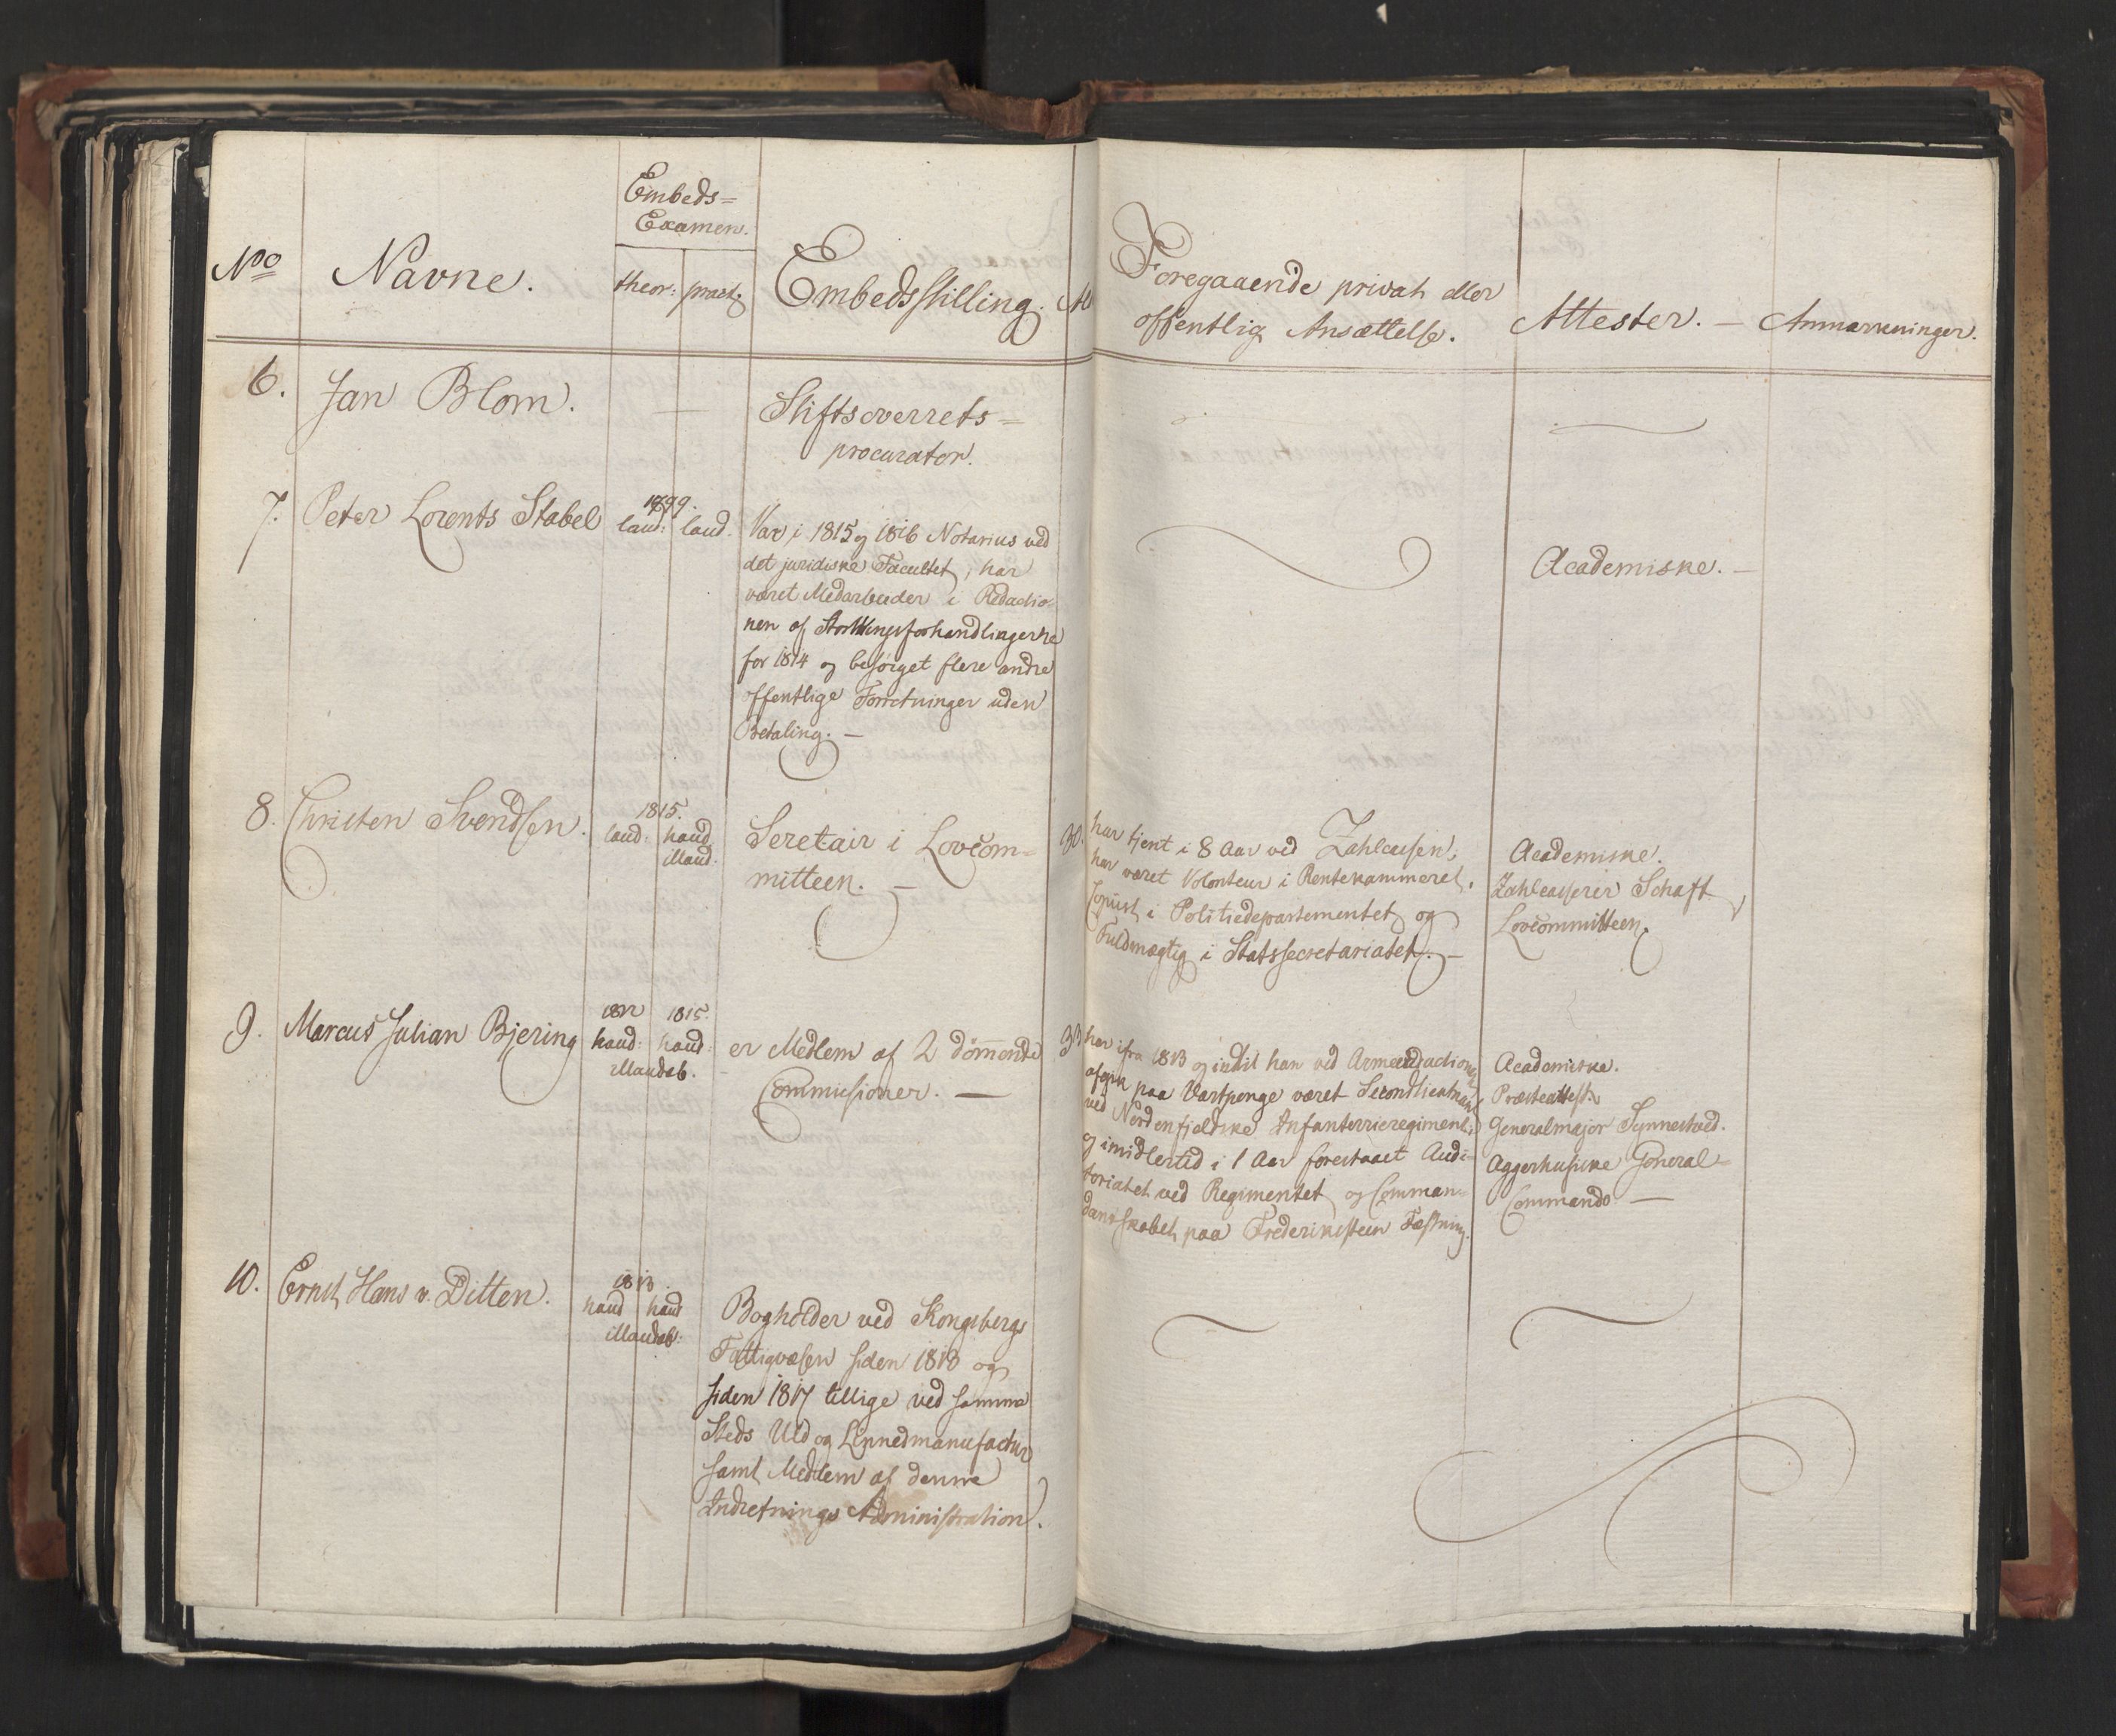 Embeds=
Examen.
No Navne. theor: pract: Embedsstilling.
Foregaaende privat eller
offentlig Ansættelse. Attester. — Anmærkninger.
6. Jan Blom. — Stiftsoverrets=
procurator.
7. Peter Lorents Stabel
1799.
laud: laud.
Var i 1815 og 1816 Notarius ved
det juridiske Facultet, har
været Medarbeider i Redactio=
nen af Storthingsforhandlingerne
for 1814 og besørget flere andre
offentlige Forretninger uden
Betaling. —
Academiske. —
8. Christen Svendsen.
1815.
laud: haud
illaud.
Seretair i Lovcom=
mitteen. —
30. har tjent i 8 Aar ved Zahlcassen,
har været Volonteur i Rentekammeret,
Copiist i Politiedepartementet og
Fuldmægtig i Statssecretariatet. —
Academiske.
Zahlcasserer Schaft
Lovcommitteen.
9. Marcus Julian Bjering
1812 1815.
haud: haud:
illaudab.
er Medlem af 2 dømmende
Commissioner. —
33 har ifra 1813 og indtil han ved Armeereductionen
afgik paa Vartpenge været Secondlieutnant
ved Nordenfjeldske Infanterieregiment,
og imidlertid i 1 Aar forestaaet Audi=
toriatet ved Regimentet og Comman=
dantskabet paa Frederiksteen Fæstning.
Academiske.
Præsteattest.
Generalmajor Synnestved.
Aggerhusiske General=
Commando —
10. Ernst Hans v. Ditten.
1813.
haud haud
illaudab:
Bogholder ved Kongsbergs
Fattigvæsen siden 1813 og
siden 1817 tillige ved samme
Steds Uld og Linnedmanufactur
samt Medlem af denne
Indretnings Administration.